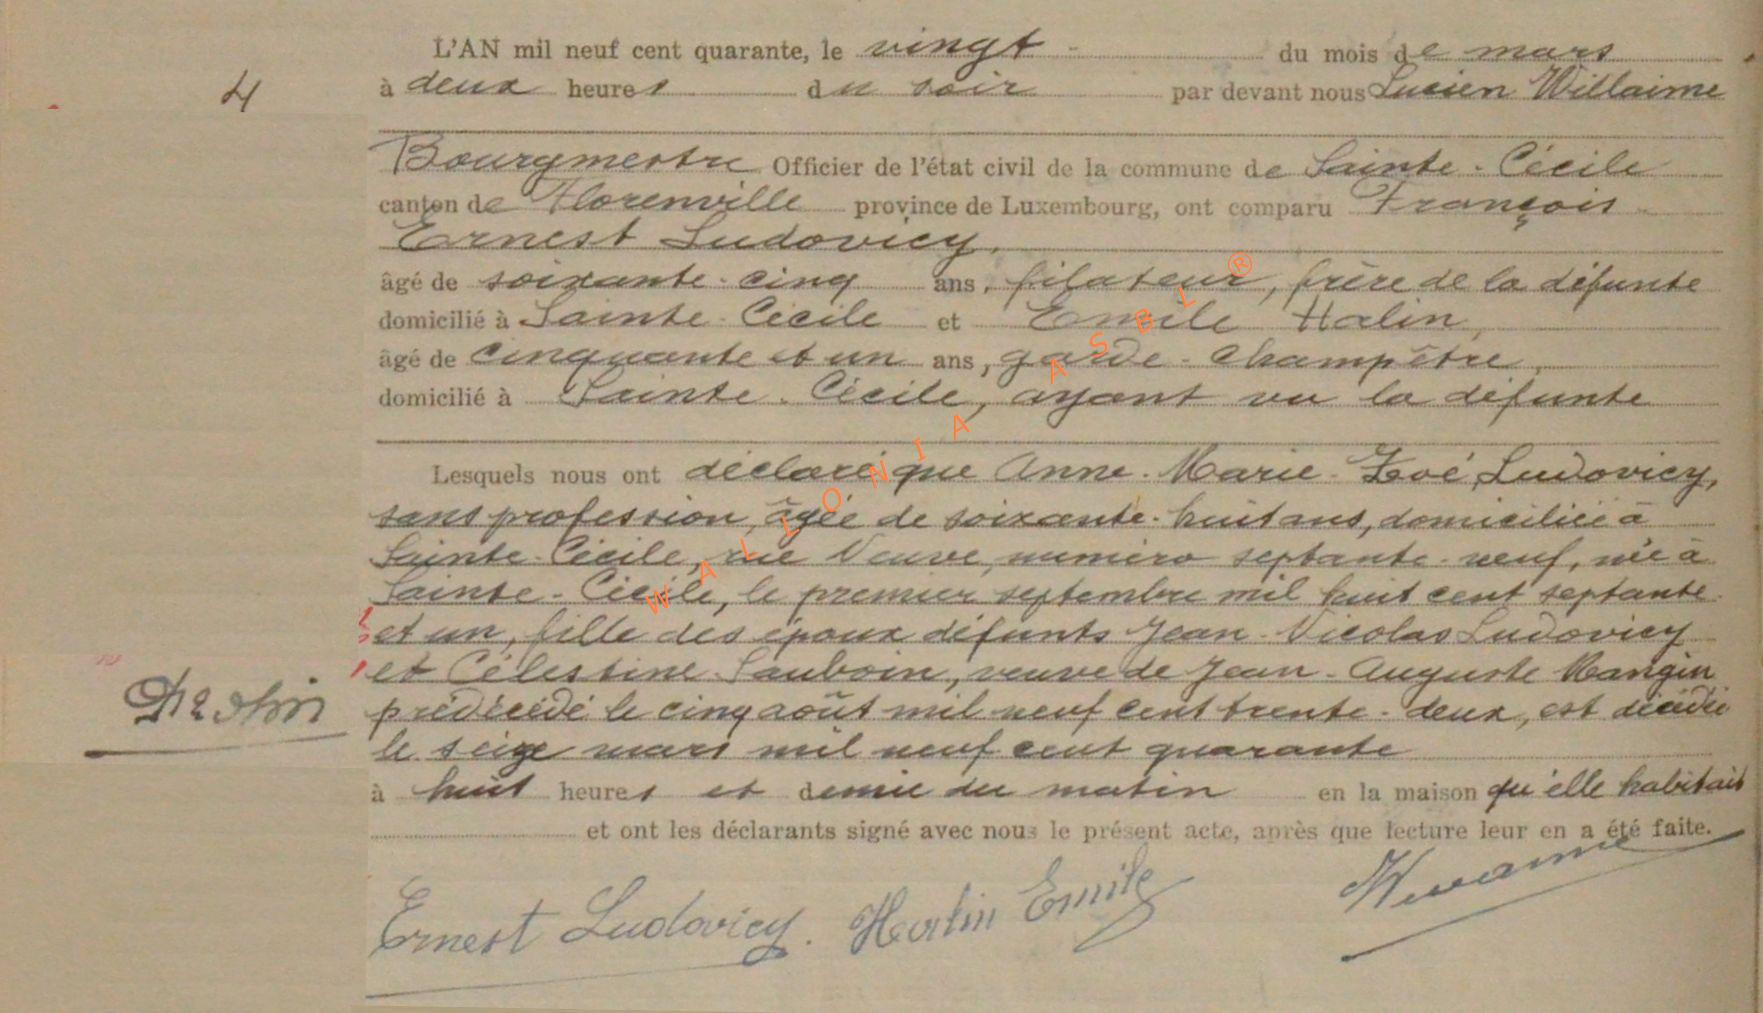 4
L'AN mil neuf cent quarante, le vingt du mois de mars
à deux heures du soir par devant nous Lucien Willaime
Bourgmestre Officier de l'état civil de la commune de Sainte-Cécile
canton de Florenville province de Luxembourg, ont comparu François
Ernest Ludovicy,
âgé de soixante-cinq ans, filateur, frère de la défunte
domicilié à Sainte-Cécile et Emile Halin,
âgé de cinquante et un ans, garde-champêtre,
domicilié à Sainte-Cécile, ayant vu la défunte
Lesquels nous ont déclaré que Anne-Marie-Zoé Ludovicy,
sans profession, âgée de soixante-huit ans, domiciliée à
Sainte-Cécile, rue Neuve, numéro septante-neuf, née à
Sainte-Cécile, le premier septembre mil huit cent septante
et un, fille des époux défunts Jean-Nicolas Ludovicy
et Célestine Sauboin, veuve de Jean-Auguste Mangin
prédécédé le cinq août mil neuf cent trente-deux, est décédée
le seize mars mil neuf cent quarante
à huit heures et demie du matin en la maison qu'elle habitait
et ont les déclarants signé avec nous le présent acte, après que lecture leur en a été faite.
Ernest Ludovicy. Halin Emile
WALLONIA ASBL ®